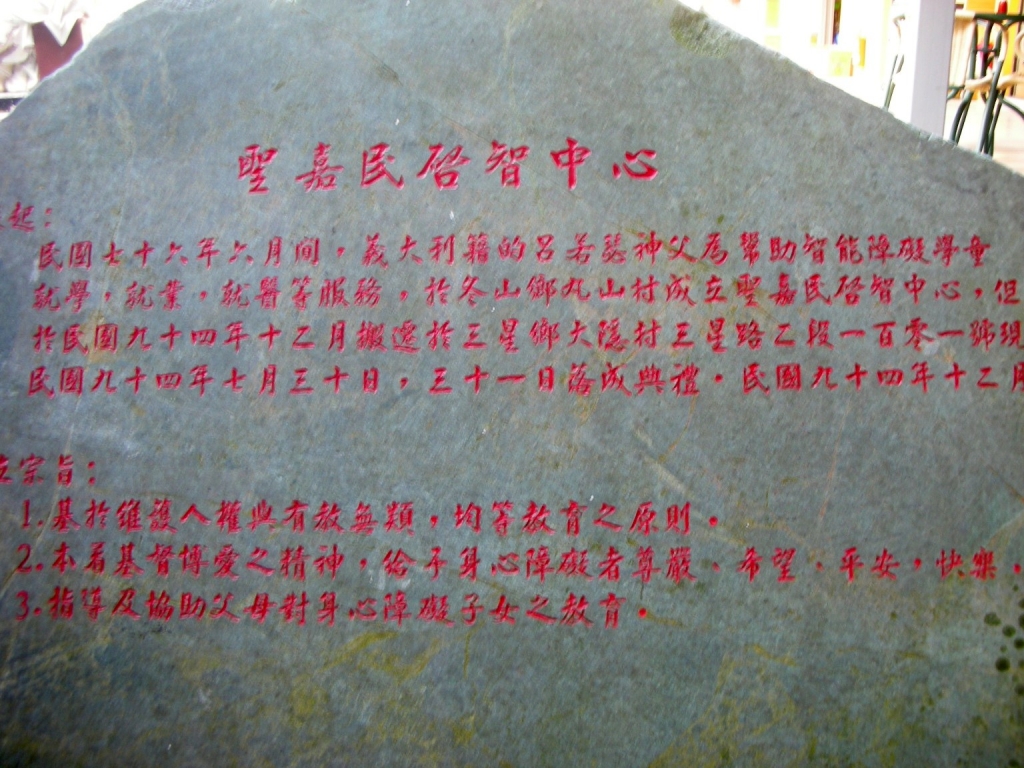 聖嘉民啓智中心
起：
民國七十六年六月間，義大利籍的呂若瑟神父為幫助智能障礙學童
就學，就業，就醫等服務，於冬山鄉丸山村成立聖嘉民啓智中心，但
於民國九十四年十二月搬遷於三星鄉大隱村三星路二段一百零一號現
民國九十四年七月三十日，三十一日落成典禮。民國九十四年十二月
宗旨：
1.基於維護人權與有教無類，均等教育之原則。
2.本着基督博愛之精神，給予身心障礙者尊嚴、希望、平安，快樂。
3.指導及協助父母對身心障礙子女之教育。